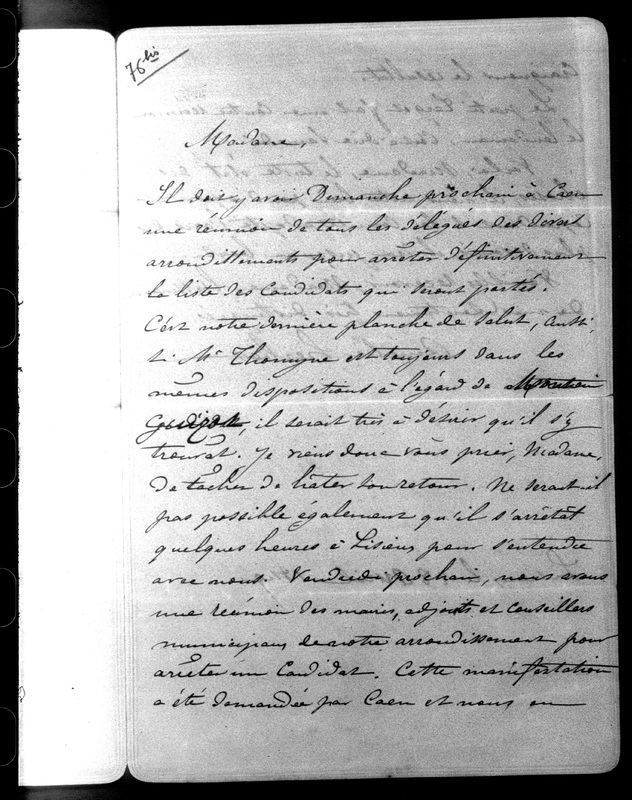 76 bis
Madame,
Il doit y avoir Dimanche prochain à Caen
une réunion de tous les délégués des divers
arrondissements pour arrêter définitivement
la liste des Candidats qui seront portés.
C'est notre dernière planche de salut, aussi,
si Mr Thomyne est toujours dans les
mêmes dispositions à l'égard de
, il serait très à désirer qu'il s'y
trouvât. Je viens donc vous prier, Madame,
de tâcher de hâter son retour. Ne serait-il
pas possible également qu'il s'arrêtât
quelques heures à Lisieux pour s'entendre
avec nous. Vendredi prochain, nous avons
une réunion des maires, adjoints et conseillers
municipaux de notre arrondissement pour
arrêter un Candidat. Cette manifestation
a été demandée par Caen et nous en